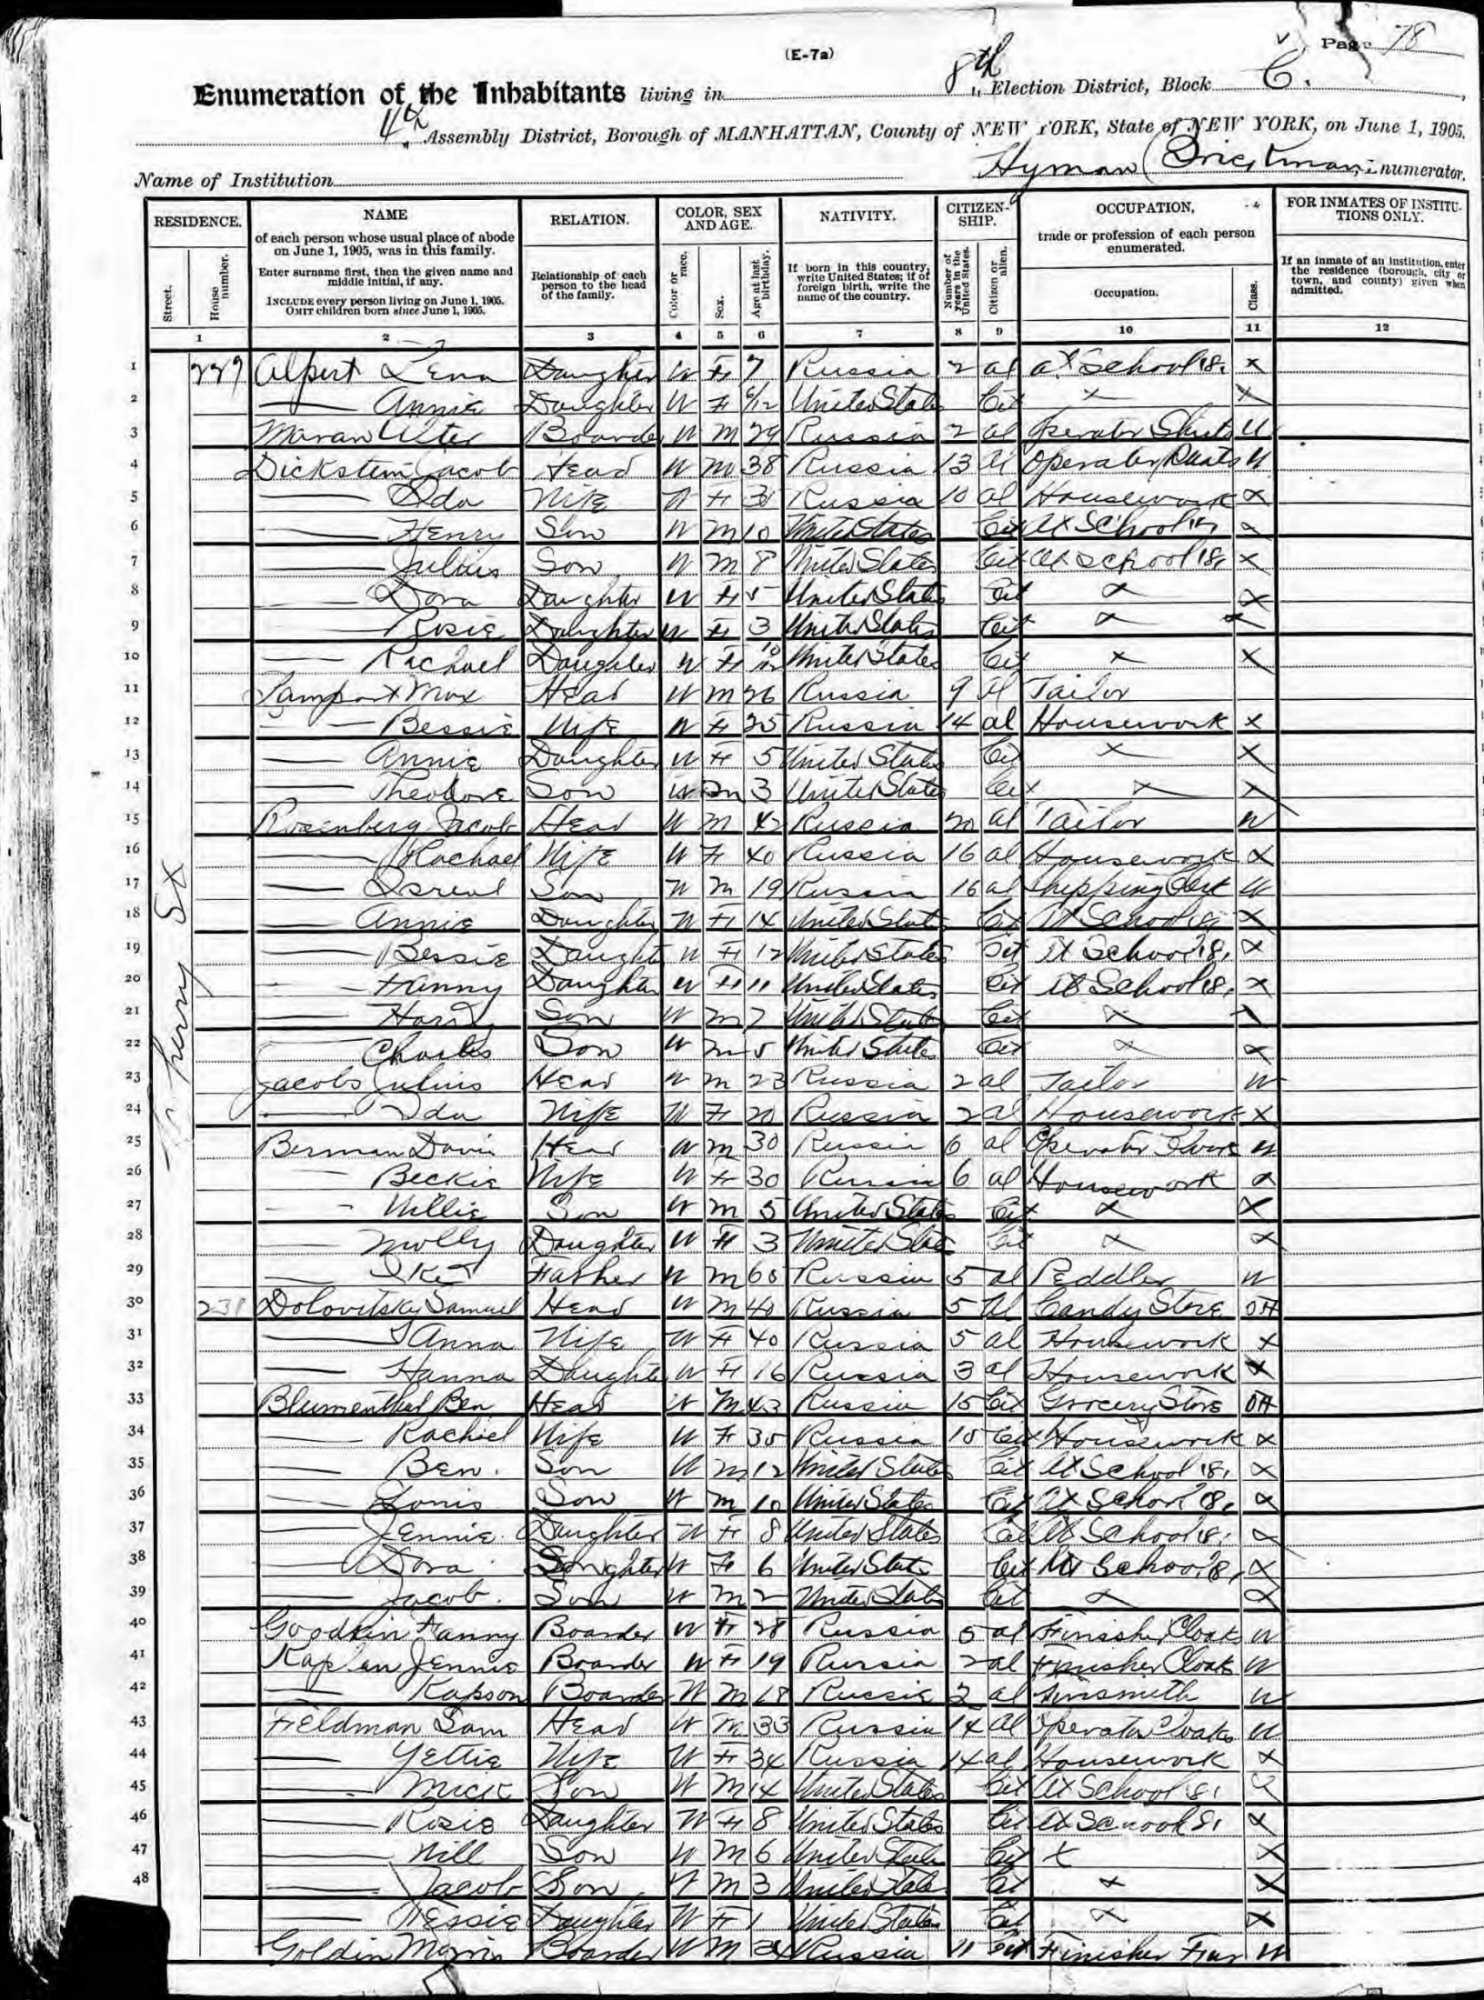 (E-7a)
Page 78
Enumeration of the Inhabitants living in 8th Election District, Block C.
4th Assembly District, Borough of MANHATTAN, County of NEW YORK, State of NEW YORK, on June 1, 1905.
Hyman Enumerator.
Name of Institution
RESIDENCE. NAME RELATION. COLOR, SEX AND AGE. NATIVITY. CITIZENSHIP. OCCUPATION, FOR INMATES OF INSTITUTIONS ONLY.
of each person whose usual place of abode on June 1, 1905, was in this family.
trade or profession of each person enumerated.
Enter surname first, then the given name and middle initial, if any.
INCLUDE every person living on June 1, 1905. OMIT children born since June 1, 1905.
Relationship of each person to the head of the family.
If born in this country, write United States; if of foreign birth, write the name of the country.
If an inmate of an institution, enter the residence (borough, city or town, and county) given when admitted.
Street. House number. Color or race. Sex. Age at last birthday. Number of years in the United States. Citizen or alien. Occupation. Class.
1 2 3 4 5 6 7 8 9 10 11 12
1 229 Alpert Lena Daughter W F 7 Russia 2 al at School 18, x
2 Annie Daughter W F 6/12 United States Cit x x
3 Boarder W M 29 Russia 2 al Operator Shirts W
4 Dickstein Jacob Head W M 38 Russia 13 al Operator Pants W
5 Ida Wife W F Russia 10 al Housework x
6 Henry Son W M 10 United States Cit at School x
7 Julius Son W M 8 United States Cit at school 18, x
8 Dora Daughter W F 5 United States Cit x x
9 Rosie Daughter W F 3 United States Cit x x
10 Rachael Daughter W F 10/12 United States Cit x x
11 Lamport Max Head W M 26 Russia 9 al Tailor
12 Bessie Wife W F 25 Russia 14 al Housework x
13 Annie Daughter W F 5 United States Cit x x
14 Theodore Son W M 3 United States Cit x x
15 Rosenberg Jacob Head W M 42 Russia 20 al Tailor W
16 Rachael Wife W F 40 Russia 16 al Housework x
17 Isreal Son W M 19 Russia 16 al Shipping Clerk W
18 Annie Daughter W F 14 United States Cit at School 18, x
19 Bessie Daughter W F 12 United States Cit at School 18, x
20 Fanny Daughter W F 11 United States Cit at School 18, x
21 Harry Son W M 7 United States Cit x x
22 Charles Son W M 5 United States Cit x x
23 Jacobs Julius Head W M 23 Russia 2 al Tailor W
24 Ida Wife W F 20 Russia 2 al Housework x
25 Berman Davis Head W M 30 Russia 6 al Operator W
26 Beckie Wife W F 30 Russia 6 al Housework x
27 Willie Son W M 5 United States Cit x x
28 Molly Daughter W F 3 United States Cit x x
29 Ike Father W M 60 Russia 5 al Peddler W
30 231 Dolovitsky Samuel Head W M 40 Russia 5 al Candy Store OA
31 Anna Wife W F 40 Russia 5 al Housework x
32 Hanna Daughter W F 16 Russia 3 al Housework x
33 Blumenthal Ben Head W M 43 Russia 15 Cit Grocery Store OA
34 Rachiel Wife W F 35 Russia 15 Cit Housework x
35 Ben. Son W M 12 United States Cit at School 18, x
36 Louis Son W M 10 United States Cit at School 8, x
37 Jennie Daughter W F 8 United States Cit at School 18, x
38 Dora Daughter W F 6 United States Cit at School 8, x
39 Jacob. Son W M 2 United States Cit x x
40 Goodkin Fanny Boarder W F 28 Russia 5 al Finisher Cloaks W
41 Kaplan Jennie Boarder W F 19 Russia 2 al Finisher Cloaks W
42 Kapson Boarder W M 18 Russia 2 al Tinsmith W
43 Fieldman Sam Head W M 33 Russia 14 al Operator Cloaks W
44 Yettie Wife W F 34 Russia 14 al Housework x
45 Son W M 14 United States Cit at School 8, x
46 Rosie Daughter W F 8 United States Cit at School 8, x
47 Will Son W M 6 United States Cit x x
48 Jacob Son W M 3 United States Cit x x
Tessie Daughter W F 1 United States Cit x x
Goldin Morris Boarder W M Russia 11 Cit Finisher Fur W
Henry St